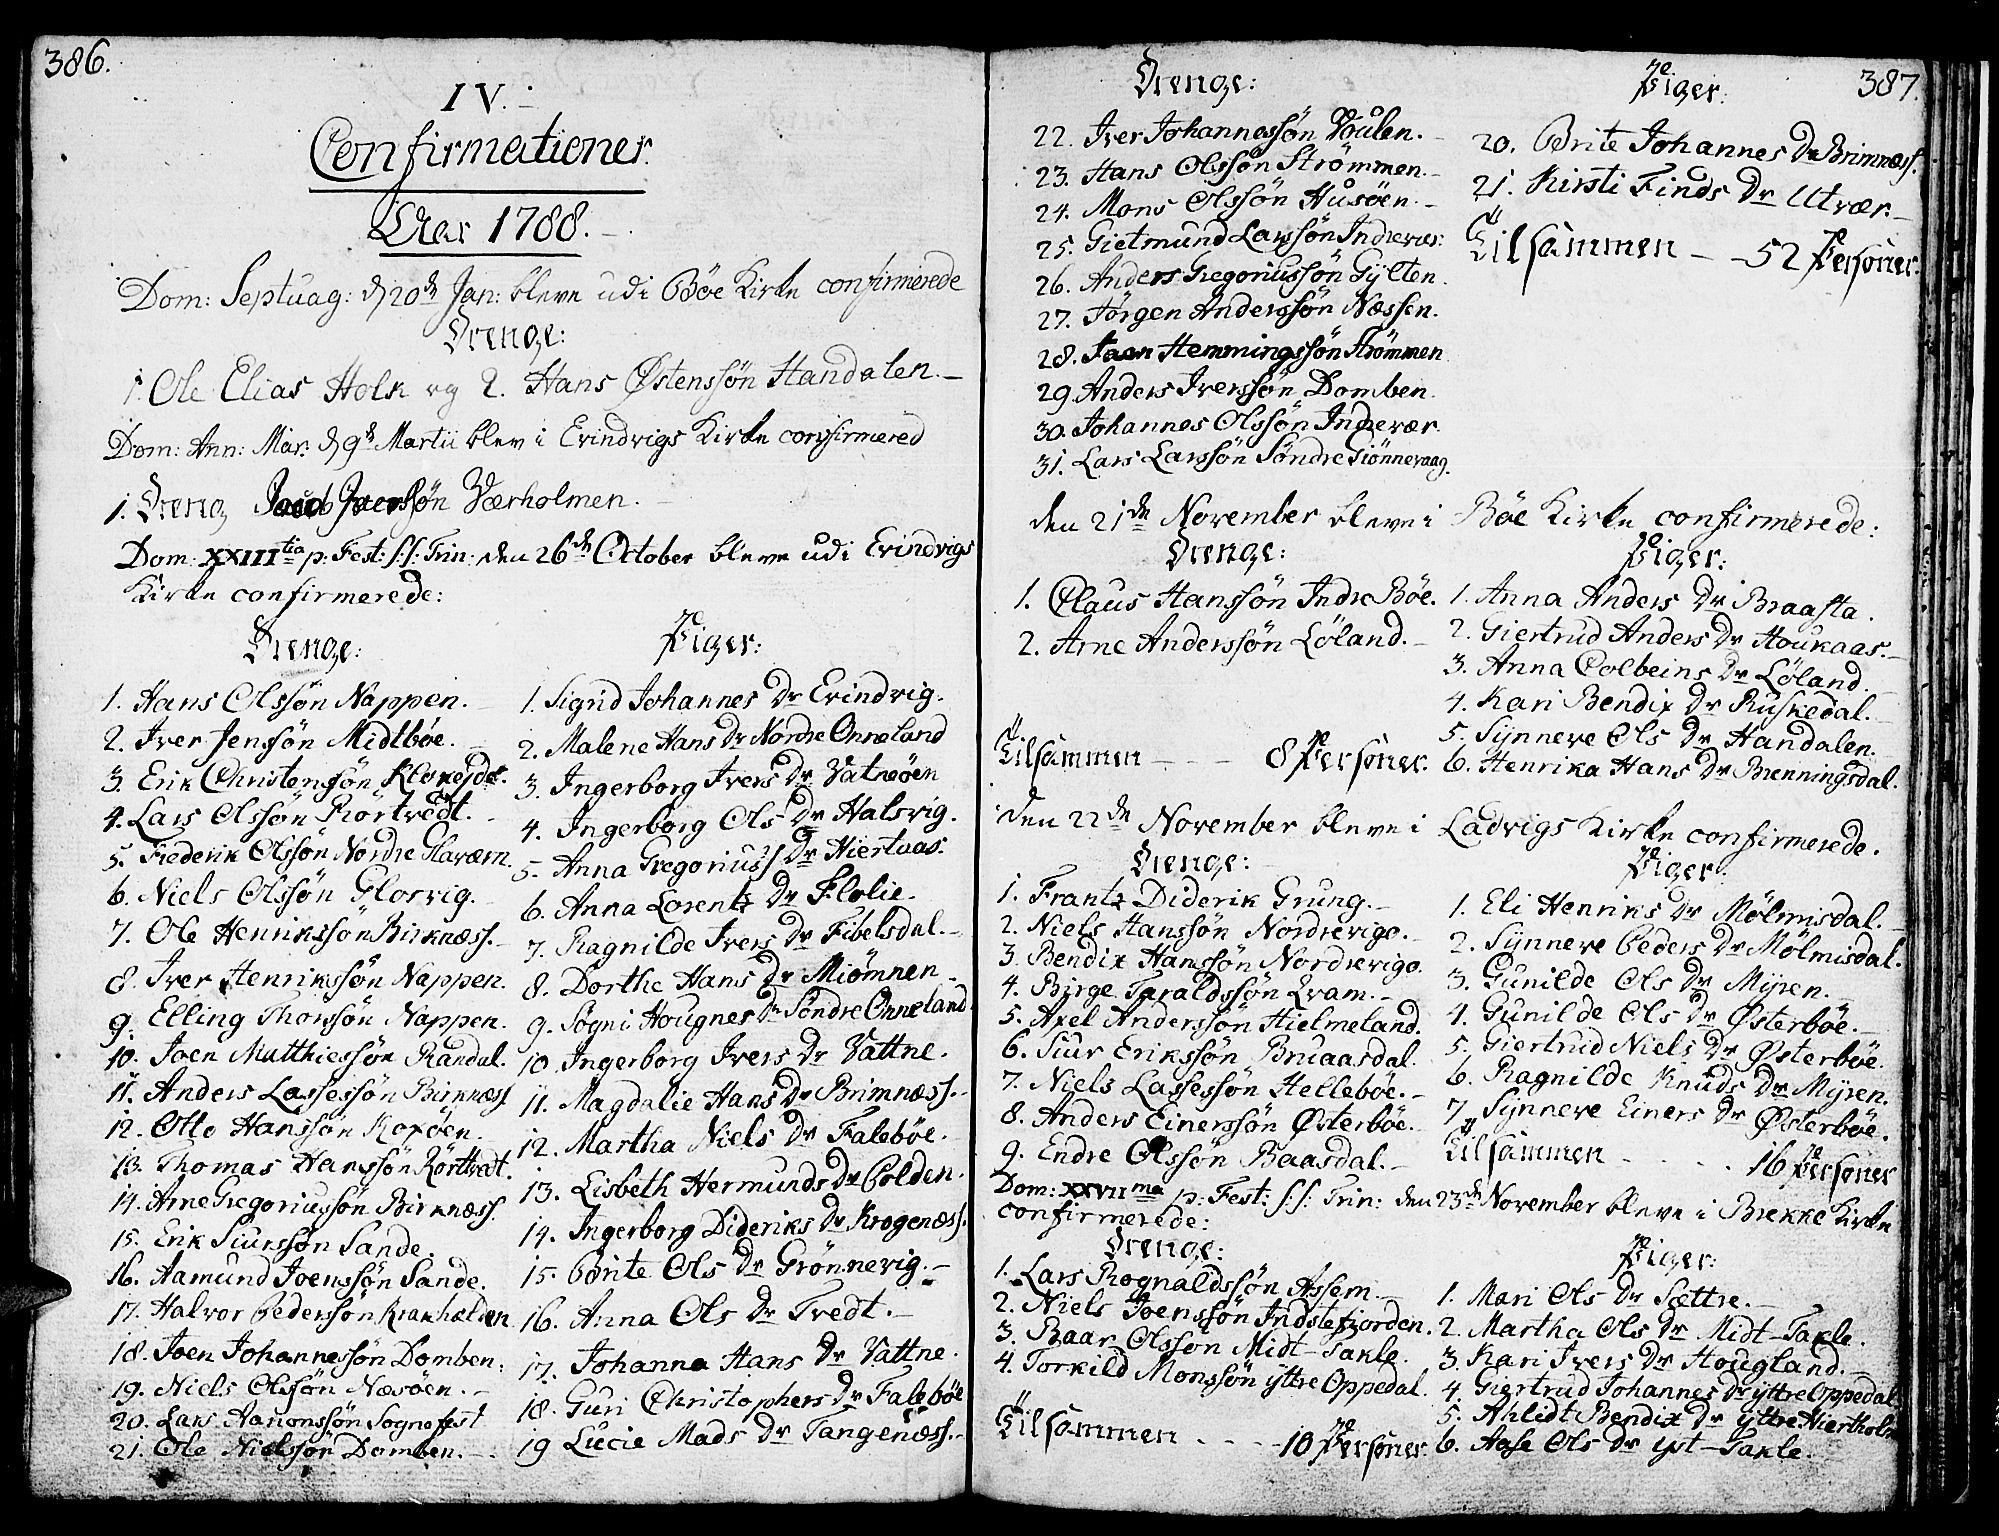 386.
IV.
Confirmationer.
Aar 1788.
Dom: Septuag: d 20de Jan: bleve udi Böe Kirke confirmerede
Drenge:
1. Ole Elias Holk og 2. Hans Østenssön Handalen.
Dom: Ann: Mar: d 9de Martii blev i Evindvigs Kirke confirmered
1. Dreng Værholmen.
Dom: XXIIItia p: Fest: S.S: Trin: den 26de October bleve udi Evindvigs
Kirke confirmerede:
Drenge:
1. Hans Olssön Nappen.
2. Iver Jenssön Midtböe.
3. Erik Christenssön
4. Lars Olssön Rörtvedt.
5. Frederik Olssön Nordre Glavæm.
6. Niels Olssön Glosvig.
7. Ole Henrikssön Birknæss.
8. Iver Henrikssön Nappen.
9. Elling Thorssön Nappen.
10. Joen Matthiessön Randal.
11. Anders Lassessön Birknæss
12. Otto Hanssön
13. Thomas Hanssön Rörtvedt.
14. Arne Gregoriussön Birknæss.
15. Erik Siurssön Sande.
16. Aamund Joenssön Sande.
17. Halvor Pederssön Krakhælden
18. Joen Johannessön Domben.
19. Niels Olssön Næsöen.
20. Lars Aanonssön Sognefest
21. Ole Nielssön Domben.
Piger:
1. Sigrid Johannes Dr Evindvig.
2. Malene Hans Dr Nordre Onneland
3. Ingerborg Ivers Dr Vatneöen
4. Ingerborg Ols Dr Halsvig.
5. Anna Gregorius's Dr Hiertaas.
6. Anna Lorentz Dr Flolie.
7. Ragnilde Ivers Dr Fibelsdal.
8. Dorthe Hans Dr Miömnen
9. Sögni Hougnes Dr Söndre Onneland
10. Ingerborg Ivers Dr Vattne.
11. Magdalie Hans Dr Brimnæss.
12. Martha Niels Dr Faleböe.
13. Lisbeth Hermunds Dr Colden.
14. Ingerborg Dideriks Dr Krogenæss.
15. Brite Ols Dr Grönnevig.
16. Anna Ols Dr Tvedt.
17. Johanna Hans Dr Vattne.
18. Guri Christophers Dr Faleböe
19 Lucie Mads Dr Tangenæss.
387.
Drenge:
22. Iver Johannessön Voulen.
23. Hans Olssön Strömmen.
24. Mons Olssön Husöen.
25. Gietmund Larssön Indrevær.
26. Anders Gregoriussön Gylten.
27. Jörgen Anderssön Næssen.
28. Joen Hemmingssön Strömmen
29. Anders Iverssön Domben.
30. Johannes Olssön Indrevær.
31. Lars Larssön Söndre Giönnevaag.
Piger:
20. Brite Johannes Dr Brimnæss.
21. Kirsti Finds Dr Utvær.
Tilsammen - - 52 Personer.
den 21de November bleve i Böe Kirke confirmerede:
Drenge:
1. Claus Hanssön Indre Böe.
2. Arne Anderssön Löland.
Piger:
1. Anna Anders Dr Braasta.
2. Giertrud Anders Dr Houkaas.
3. Anna Colbeins Dr Löland.
4. Kari Bendix Dr Ruskedal.
5. Synneve Ols Dr Handalen.
6. Henrika Hans Dr Brenningsdal.
Tilsammen - - - 8 Personer.
den 22de November bleve i Ladvigs Kirke confirmerede.
Drenge:
1. Frantz Diderik Grung.
2. Niels Hanssön Nordrevige.
3. Bendix Hanssön Nordrevige.
4. Birge Taraldssön Kram.
5. Axel Anderssön Hielmeland.
6. Siur Erikssön Bruaasdal.
7. Niels Lassessön Helleböe.
8. Anders Einerssön Østerböe.
9. Endre Olssön Baasdal.
Piger.
1. Eli Henriks Dr Mölmisdal.
2. Synneve Peders Dr Mölmisdal.
3. Gunilde Ols Dr Myren.
4. Gunilde Ols Dr Østerböe.
5. Giertrud Niels Dr Østerböe.
6. Ragnilde Knuds Dr Myren.
7 Synneve Einers Dr Østerböe.
Tilsammen - - - - 16 Personer
Dom: XXVIIma p: Fest: S.S: Trin: den 23de November bleve i Brekke Kirke
confirmerede:
Drenge:
1. Lars Rognaldssön Assem.
2. Niels Joenssön Indstefjorden.
3. Baar Olssön Midt-Takle.
4. Torkild Monssön yttre Oppedal.
Piger:
1. Mari Ols Dr Sættre.
2. Martha Ols Dr Midt-Takle.
3. Kari Ivers Dr Hougland.
4 Giertrud Johannes Dr yttre Oppedal
5. Ahlidt Bendix Dr yttre Hiertholm
6. Aase Ols Dr yst-Takle.
Tilsammen - - - - 10 Personer